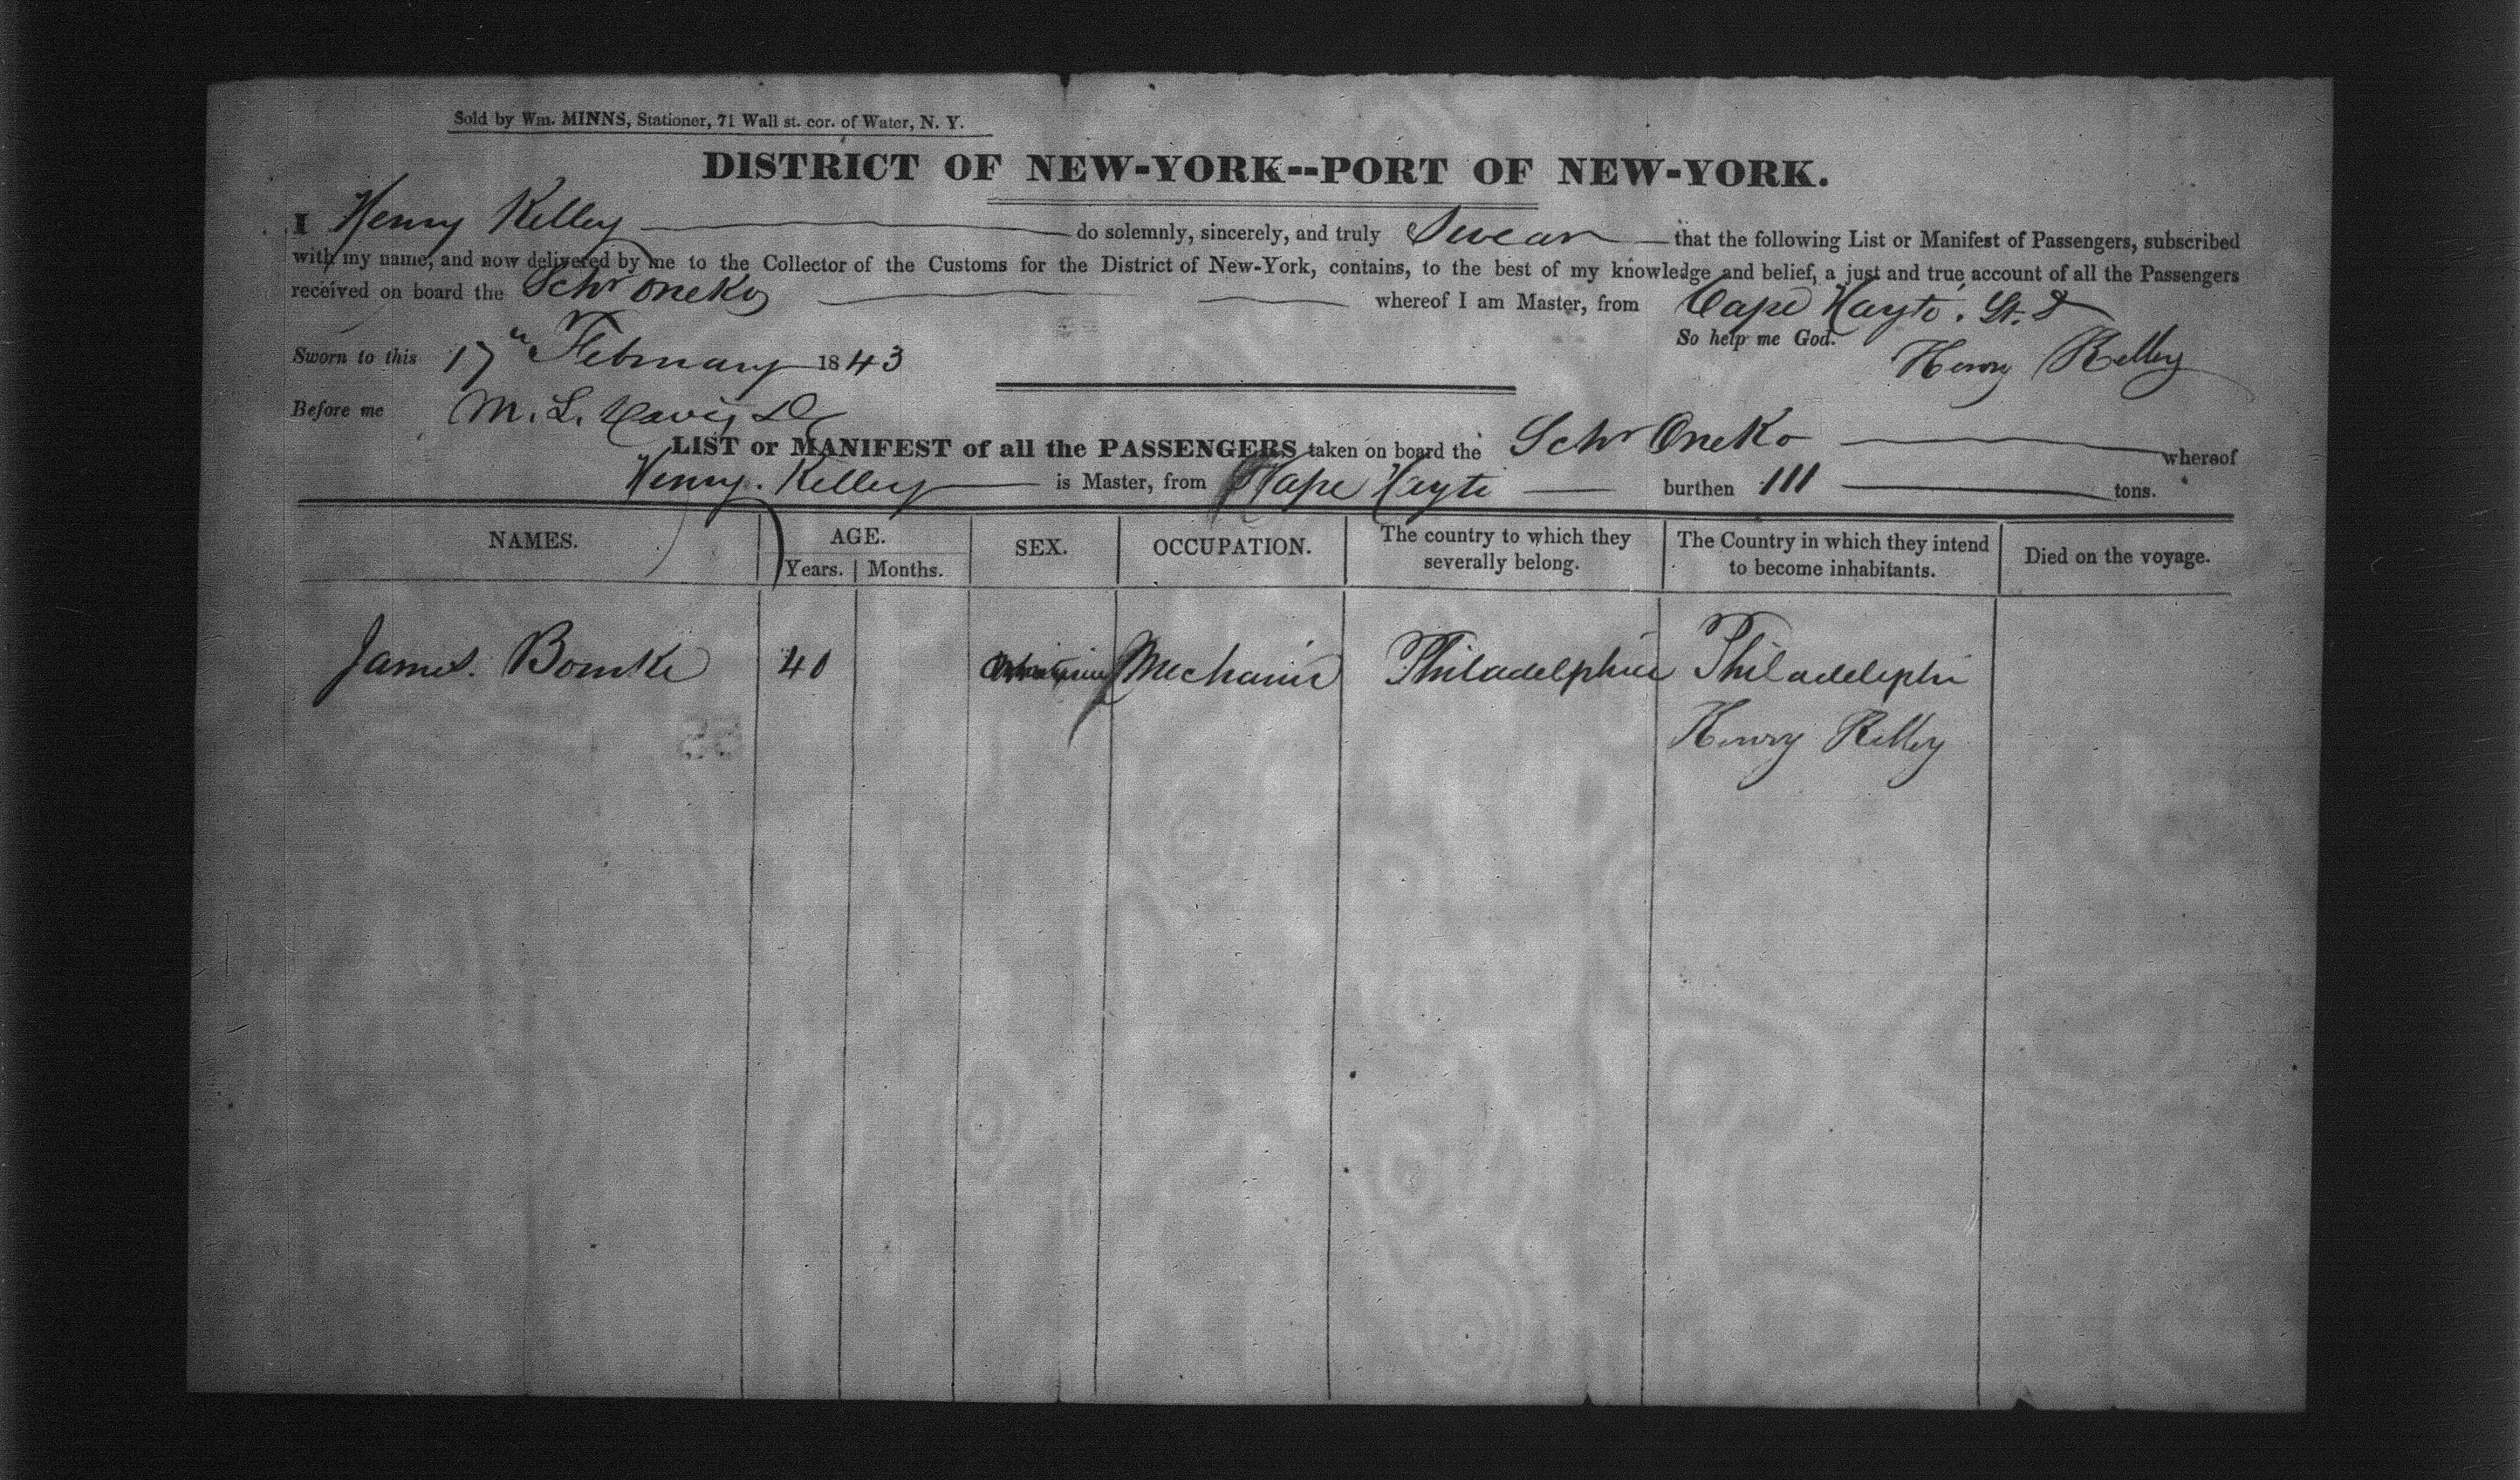 Sold by Wm. MINNS, Stationer, 71 Wall st. cor. of Water, N. Y.
DISTRICT OF NEW-YORK--PORT OF NEW-YORK.
I Henry Kelley do solemnly, sincerely, and truly Swear that the following List or Manifest of Passengers, subscribed
with my name, and now delivered by me to the Collector of the Customs for the District of New-York, contains, to the best of my knowledge and belief, a just and true account of all the Passengers
received on board the Schr Oneko whereof I am Master, from Cape Hayte. St. D
So help me God.
Sworn to this 17th February 1843 Henry Kelley
Before me M. L. Davis
LIST or MANIFEST of all the PASSENGERS taken on board the Schr Oneko whereof
Henry. Kelley is Master, from Cape Hayte burthen 111 tons.
NAMES. AGE. SEX. OCCUPATION. The country to which they severally belong. The Country in which they intend to become inhabitants. Died on the voyage.
Years. Months.
James. 40 Mechanic Philadelphia Philadelphi
Henry Kelley